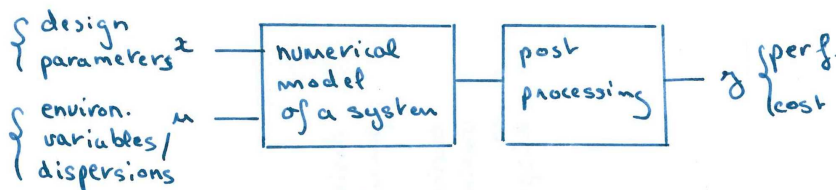 design
parameters x
environ.
variables/ u
dispersions
numerical
model
of a system
post
processing
y
perf.
cost